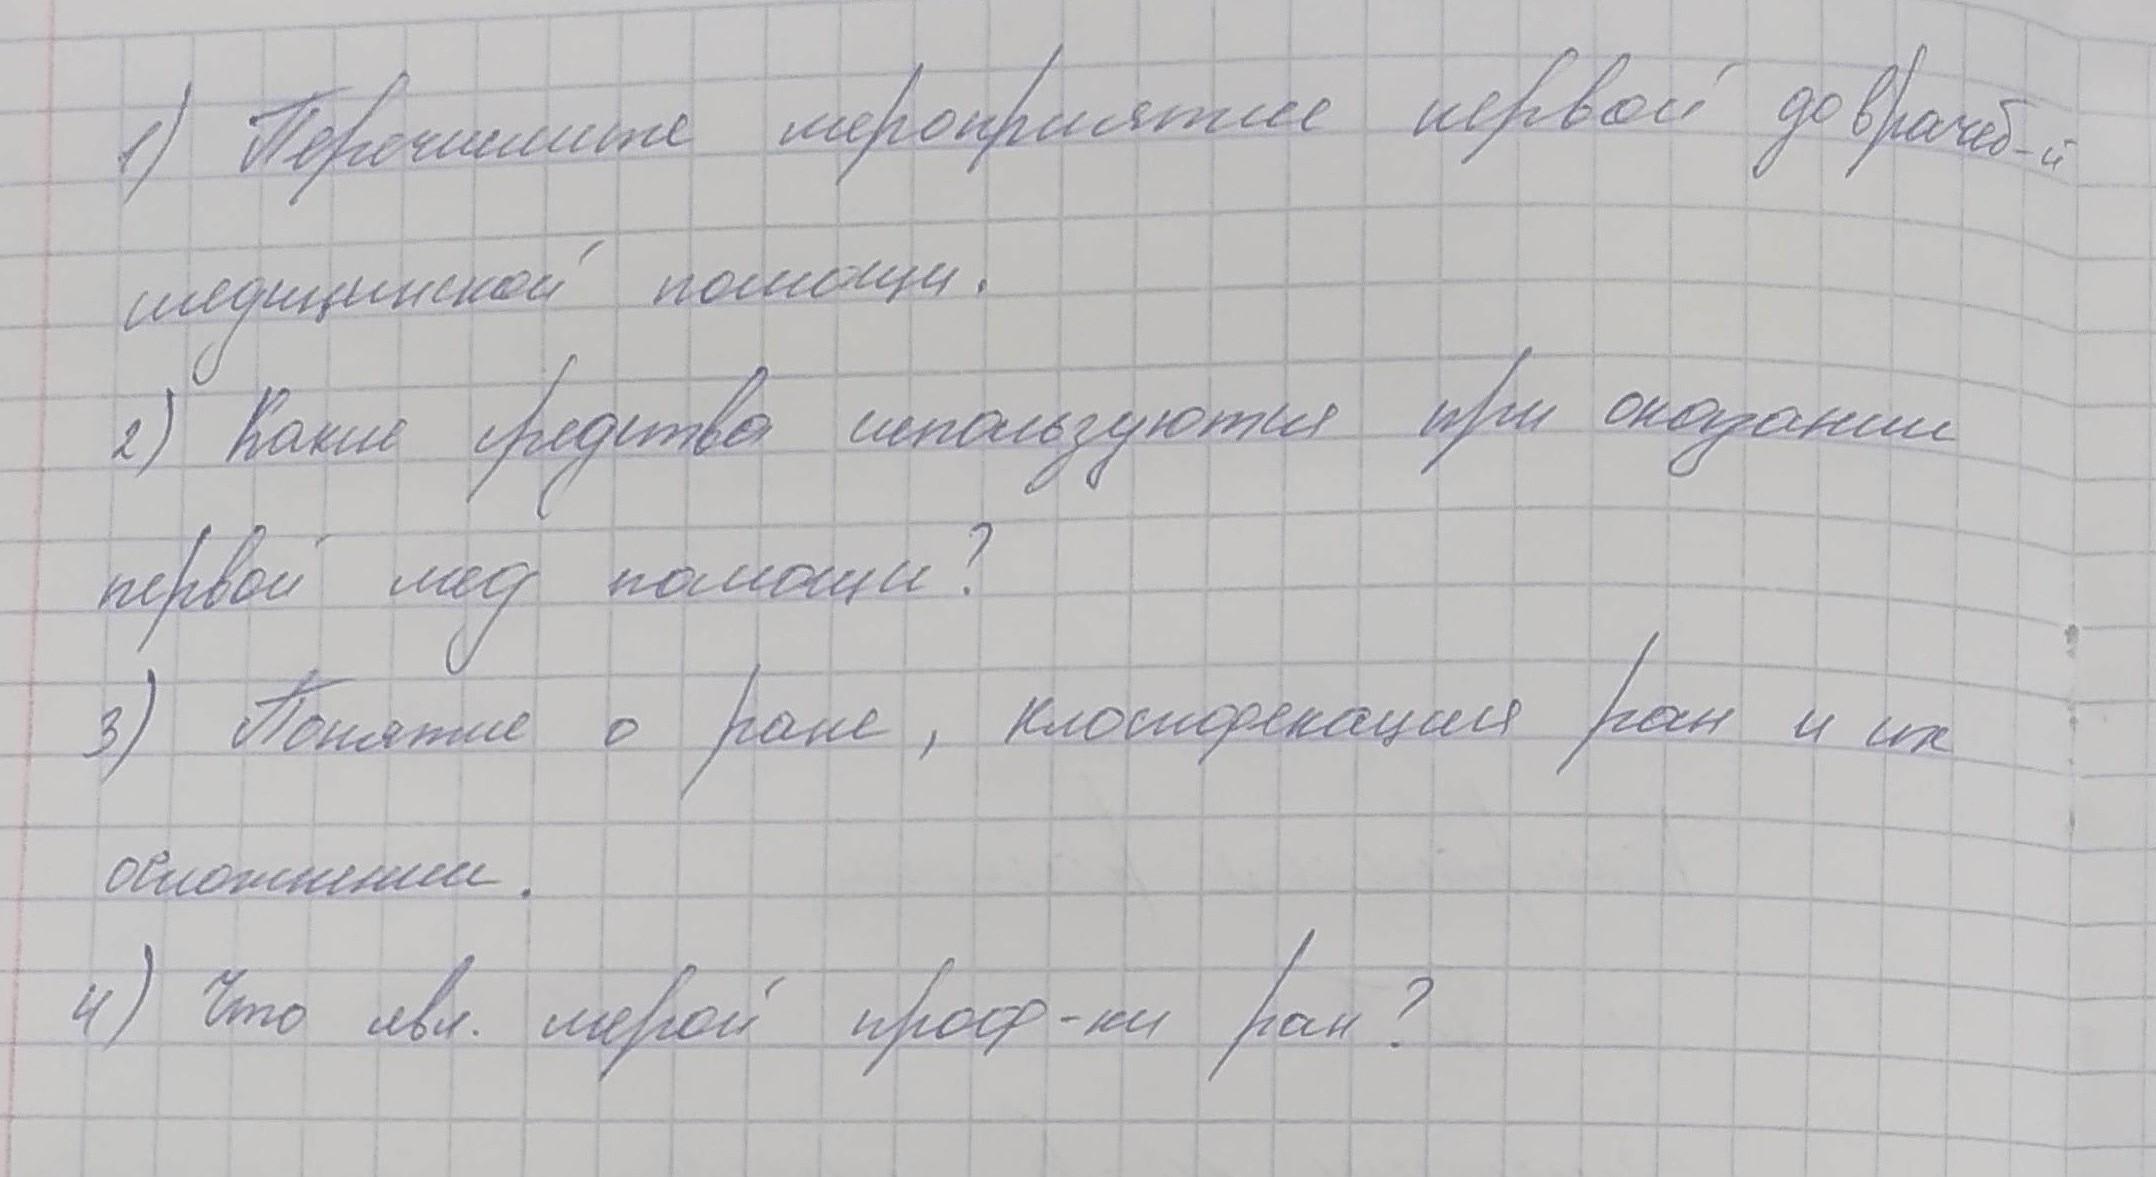 1) Перечислите мероприятие первой доврачеб-й
медицинской помощи.
2) Какие средства используются при оказании
первой мед помощи?
3) Понятие о ране, класификация ран и их
осложнении.
4) Что явл. мерой проф-ки ран?